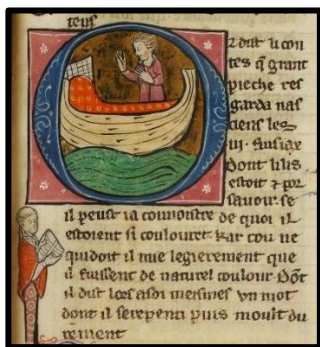 teus
Or dist li con
tes q̃ grant
pieche res
garda nas
ciens les
.iii. fusiax
dont li lis
estoit ⁊ por
sauoir se
il peust ia connoistre de quoi il
estoient si coulouret. kar cou ne
quidoit il mie legierement que
il fuissent de naturel coulour dõt
il dist lors a soi meismes vn mot
dont il se repenti puis moult du
rement